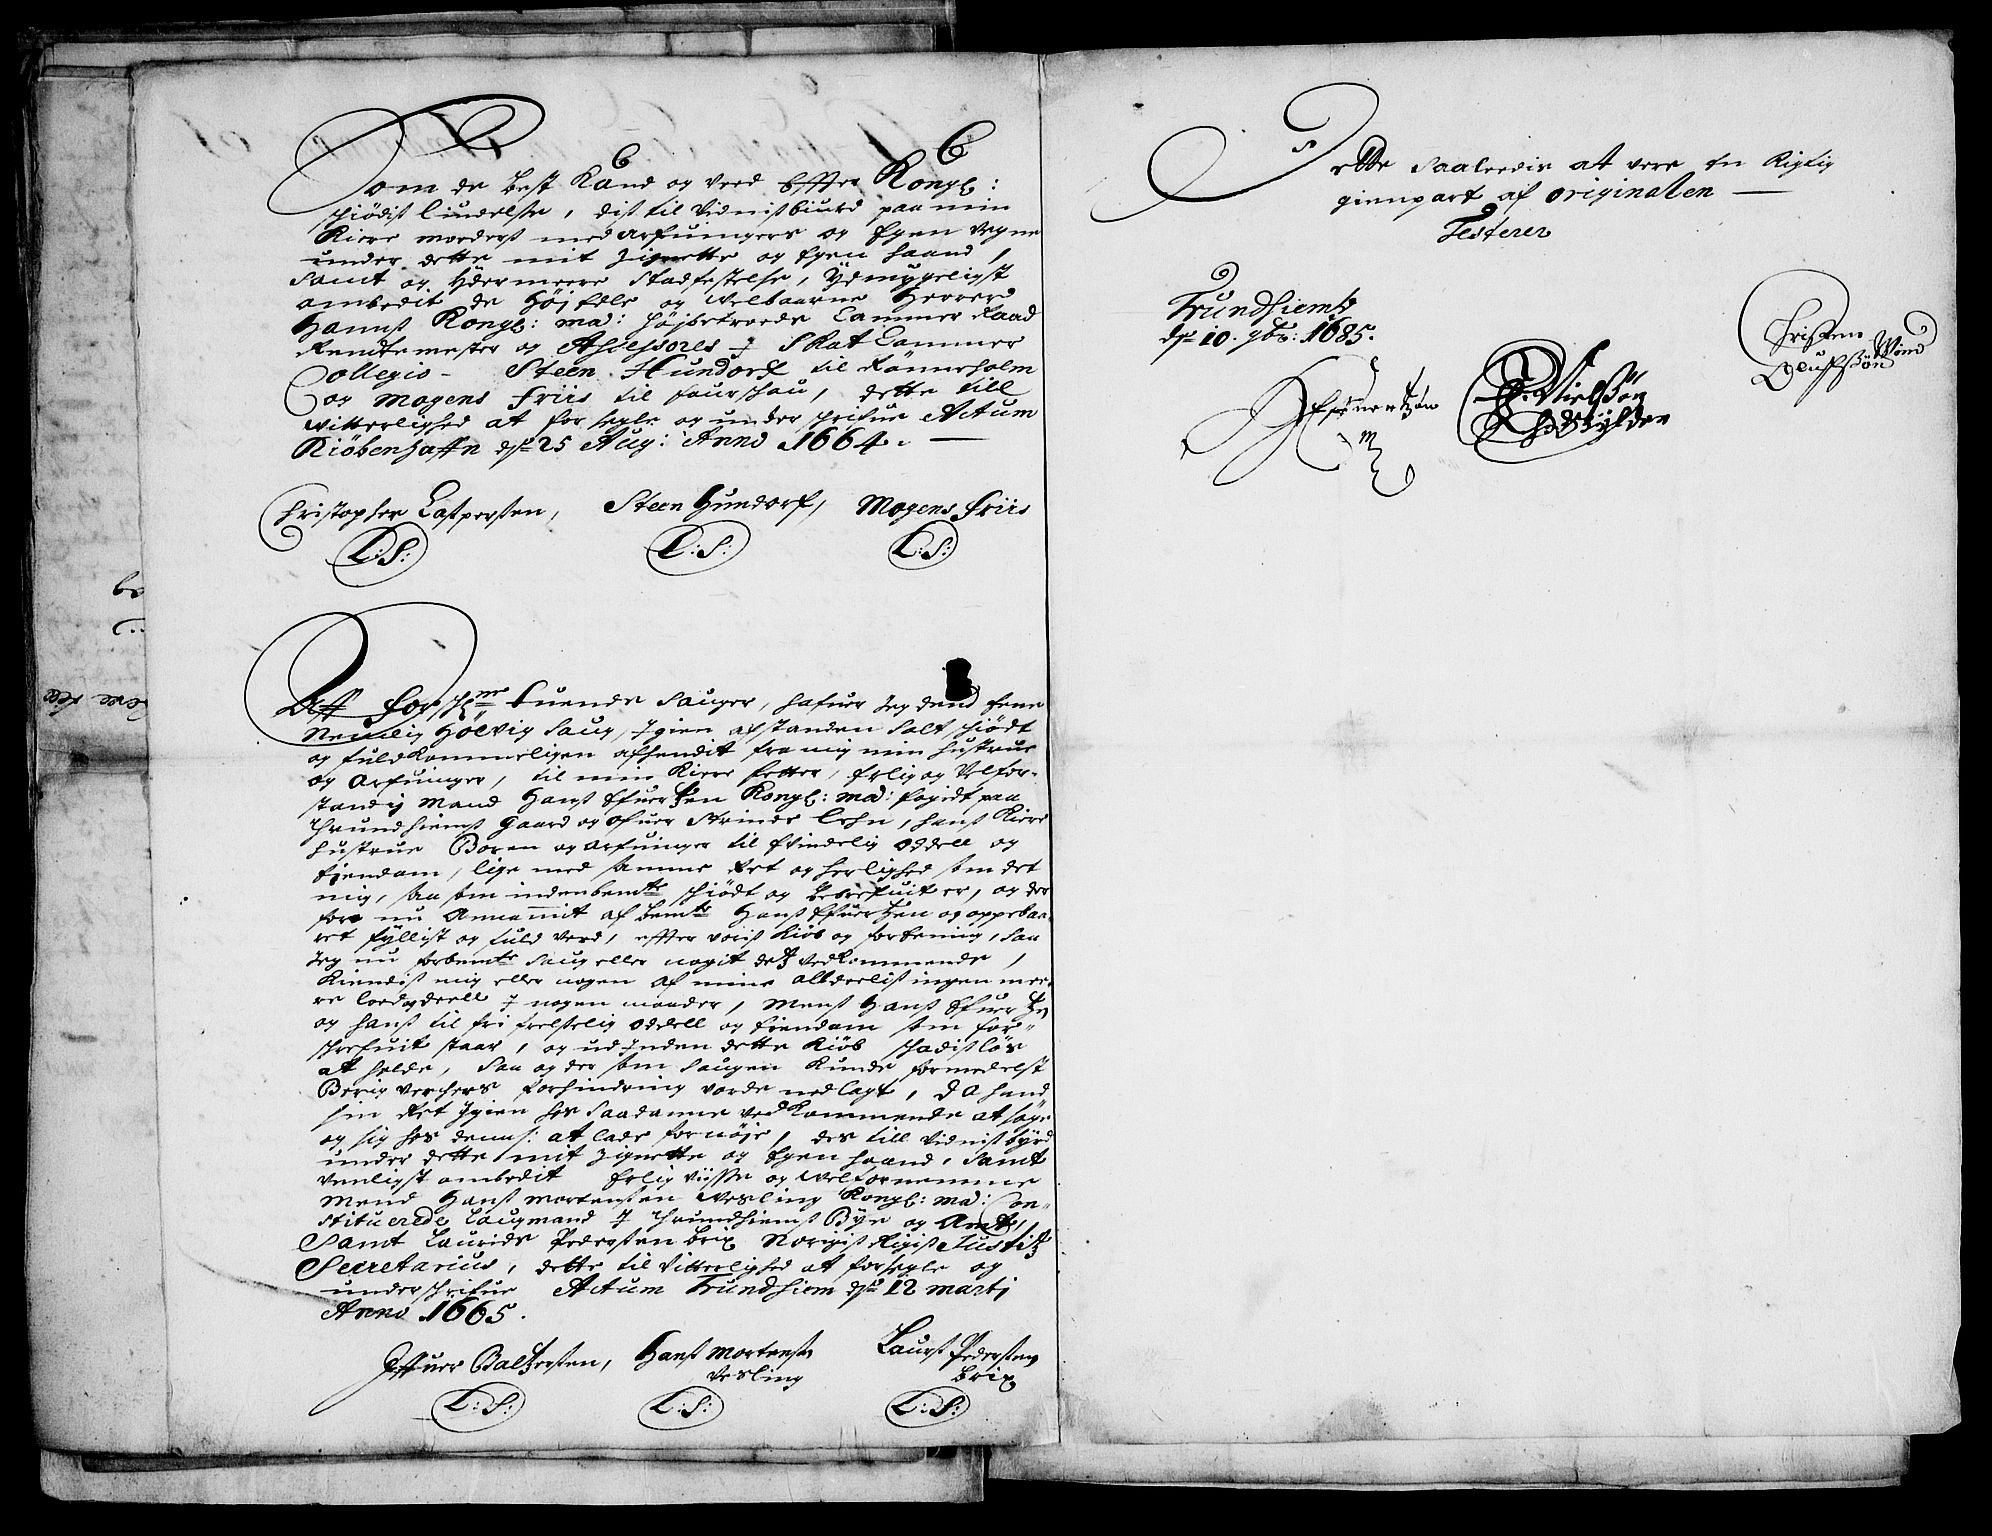 Som de best Kand og veed Effter Kongl:
schiödis liudelse, dis til Vidnisbiurd paa min
Kiere moders med Arfuingers og Egen vegne
under dette mit Zignette og Egen haand,
samt og ydermeere Stadfestelse, Ydmygeligst
ombedit de Höjædle og Welbaarne Herrer
Hanns Kongl: ma: Höjbetroede Cammer Raad
Rendtemester og Assessores J Skat Cammer
Collegio - Steen Hundorf til Rönneholm
og Mogens Friis til Faurschau, dette till
vitterlighed at forsegle og underschrifue Actum
Kiöbenhaffn dn 25 Aug: Anno 1664.
Christopher Caspersen, Steen Hundorf, Mogens Friis
L:S: L:S: L:S:
Aff forschne tuende Sauger, hafuer Jeg dend Eene
Nemlig Hölvig Saug, Jgien afstanden solt, schiödt
og fuldkommeligen afhendit fra mig min hustrue
og Arfuinger, til min Kiere fetter, Erlig og Velfor-
standig Mand Hans Efuertzen Kongl: ma: fogidt paa
Thrundhiems gaard og ofuer Strinde Lehn, hans Kiere
hustrue Børen og arfuinger til Evindelig oddell og
Eiendom, lige med samme Ret og herlighed som det
mig, saa som indenbemte schiödt og beskrefuit er, og der
fore nu Annammit af bemte Hans Efuertzen og oppebaa-
ret fyllist og fuld verd, effter voris Kiöb og forening, saa
Jeg nu forbemte Saug eller nogit detz vedkommende,
Kiendis mig eller nogen af mine aldeelis ingen mee-
re lod og deell J nogen maader, Mens Hans Efuertzen
og hans til fri frelselig oddell og Eiendom som for-
schrefuit staar, og ud Jnden dette Kiöb schadislös
at holde, Saa og der som Saugen Kunde formedelst
Berig verchers forhindring vorde nedlagt, da hand
sin Ret Jgien hos Saadanne vedkommende at söge
og sig hos dennem at lade fornöje, des till vidnisbyrd
under dette mit Zignette og Egen haand, samt
venligst ombedit Erlig viisse og Welfornemme
Mend Hans Mortensen Wesling Kongl: ma: Con-
stituerede Laugmand J Thrundhiems Bye og Amt,
Samt Laurids Pedersen Brix Norigis Rigis Justitz
Secretarius, dette til Vitterlighed at forsegle og
underschrifue Actum Trundhiem dn 12 marti
Anno 1665.
Iffuer Baltzersen, Hans Mortensen Laurs Pedersen
Vesling Brix
L:S: L:S: L:S:
Dette saaleedis at vere en Rigtig
gienpart af originalen
Testerer
Trundhiemb
dn 10. 9br: 1685.
H Efuertzøn
Nielsön
Christen
Olufssøn Wind